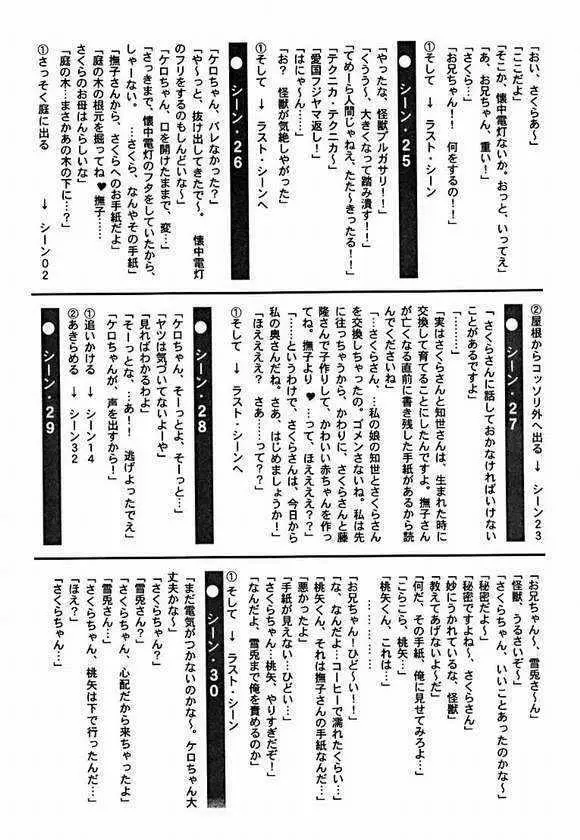 「おい、さくらあ～」
「ここだよ」
「そこか、懐中電灯ないか。おっと、いってえ」
「あ、お兄ちゃん、重い！」
「さくら…」
「お兄ちゃん！！　何をするの！！」
①そして　→　ラスト・シーン
●シーン・25
「やったな、怪獣ブルガサリ！！」
「くううう～、大きくなって踏み潰す！！」
「てめーら人間じゃねえ、たた～きったる！！」
「テクニカ・テクニカ～」
「愛国フジヤマ返し！」
「はにゃ～ん……」
「お？　怪獣が気絶しやがった」
①そして　→　ラスト・シーンへ
●シーン・26
「ケロちゃん、バレなかった？」
「や～っと、抜け出してきたで～。　懐中電灯
のフリをするのもしんどいな～」
「ケロちゃん、口を開けたままで、変…」
「さっきまで、懐中電灯のフタをしていたから、
しゃーない。　…さくら、なんやその手紙」
「撫子さんから、さくらへのお手紙だよ」
「庭の木の根元を掘ってね♥撫子……
さくらのお母はんらしいな」
「庭の木…まさかあの木の下に…？」
①さっそく庭に出る　→　シーン02
②屋根からコッソリ外へ出る　→　シーン23
●シーン・27
「さくらさんに話しておかなければいけない
ことがあるですよ」
「………」
「実はさくらさんと知世さんは、生まれた時に
交換して育てることにしたんですよ。撫子さん
が亡くなる直前に書き残した手紙があるから読
んでくださいね」
「…さくらさん、…私の娘の知世とさくらさん
を交換しちゃったの。ゴメンさないね。私は先
①そして　→　ラスト・シーンへ
●シーン・28
「ケロちゃん、そーっとよ、そーっと…」
「ヤツは気づいてないよーや」
「見ればわかるわよ」
「そーっとな、…あ！　逃げよったでえ」
「ケロちゃんが、声を出すから！」
①追いかける　→　シーン14
②あきらめる　→　シーン32
●シーン・29
「お兄ちゃん～、雪兎さ～ん」
「怪獣、うるさいぞ～」
「さくらちゃん、いいことあったのかな～」
「秘密だよ～」
「秘密ですよね～、さくらさん」
「妙にうかれているな、怪獣」
「教えてあげないよ～だ」
「何だ、その手紙、俺に見せてみろよ…」
「こらこら、桃矢…」
「桃矢くん、これは…」
………………
「お兄ちゃん！ひど～い！！」
「な、なんだよ…コーヒーで濡れたくらい…」
「桃矢くん、それは撫子さんの手紙なんだ…」
「悪かったよ」
「手紙が見えない…ひどい…」
「さくらちゃん…桃矢、やりすぎだぞ！」
「なんだよ、雪兎まで俺を責めるのか」
①そして　→　ラスト・シーン
●シーン・30
「まだ電気がつかないのかな～。ケロちゃん大
丈夫かな～」
「さくらちゃん？」
「雪兎さん？」
「さくらちゃん、心配だから来ちゃったよ」
「雪兎さん…」
「さくらちゃん、桃矢は下で行ったんだ…」
「ほえ？」
「さくらちゃん…」